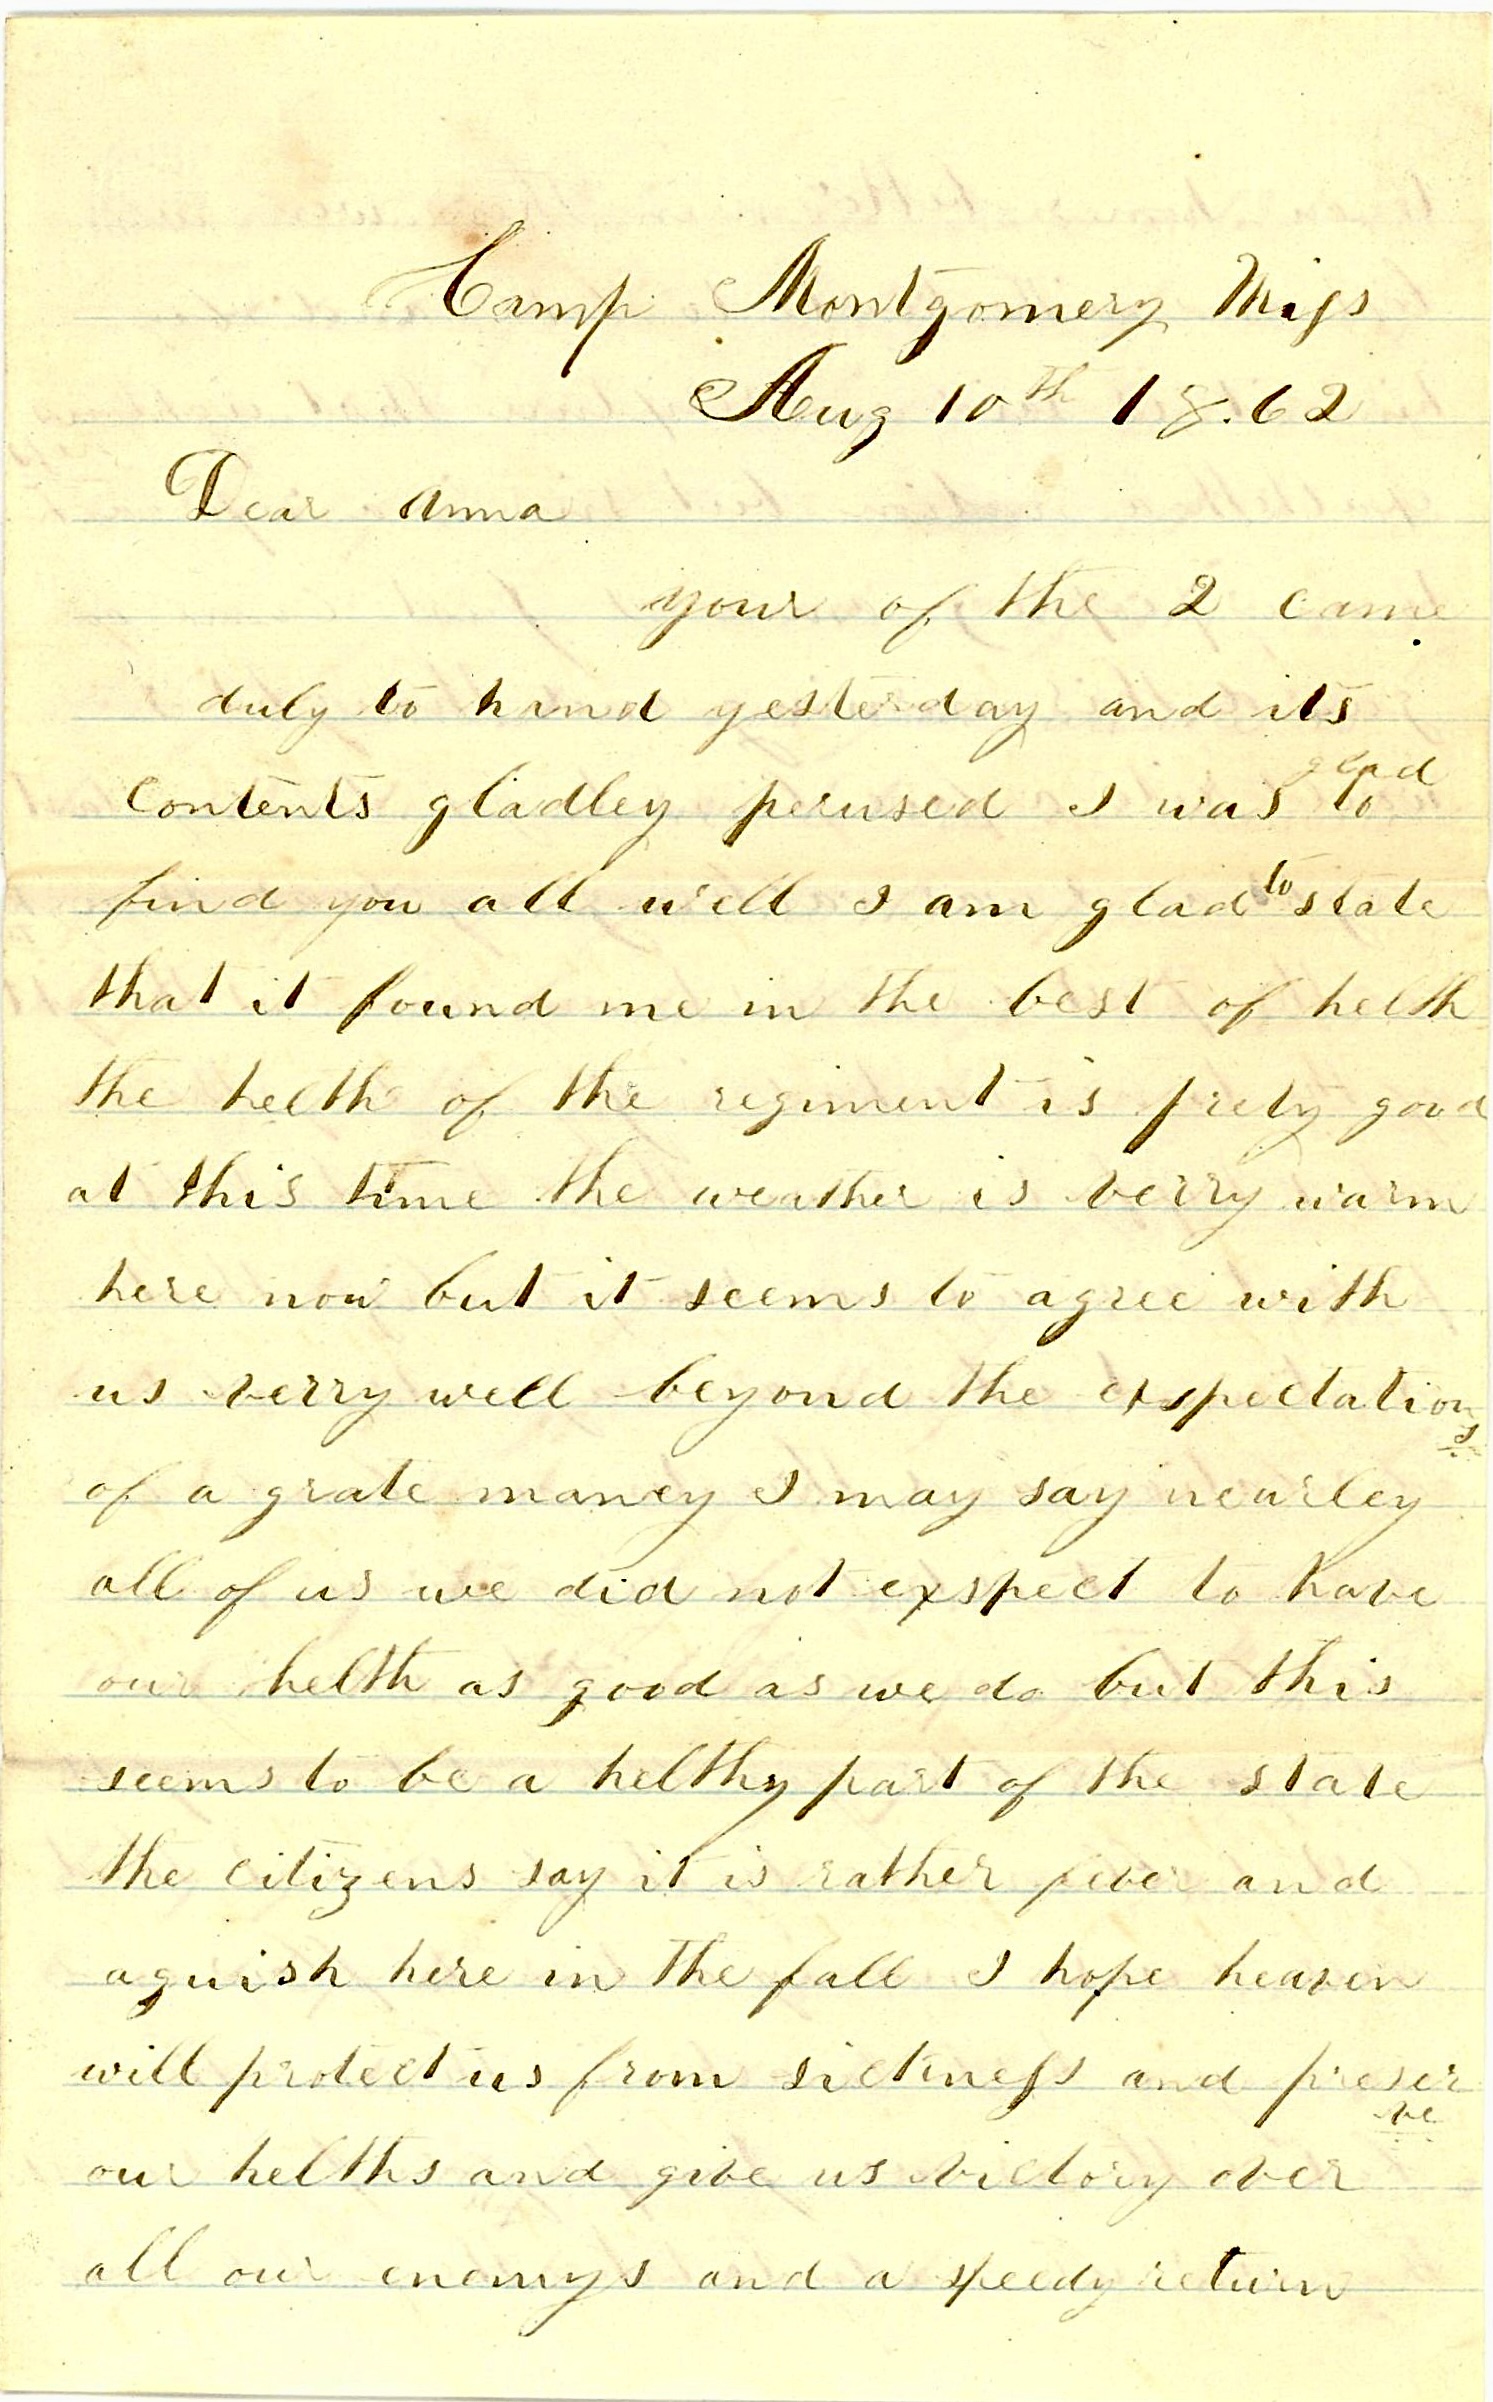 Camp Montgomery Miss
Aug 10th 18.62
Dear Anna
your of the 2 came
duly to hand yesterday and its
contents gladley perused I was glad to
find you all well I am glad to state
that it found me in the best of helth
the helth of the regiment is prety good
at this time the weather is verry warm
here now but it seems to agree with
us verry well beyond the exspectations
of a grate maney I may say nearley
all of us we did not exspect to have
our helth as good as we do but this
seems to be a helthy part of the state
the citizens say it is rather fever and
aguish here in the fall I hope heaven
will protect us from sickness and preserve
our helths and give us victory over
all our enemys and a speedy return